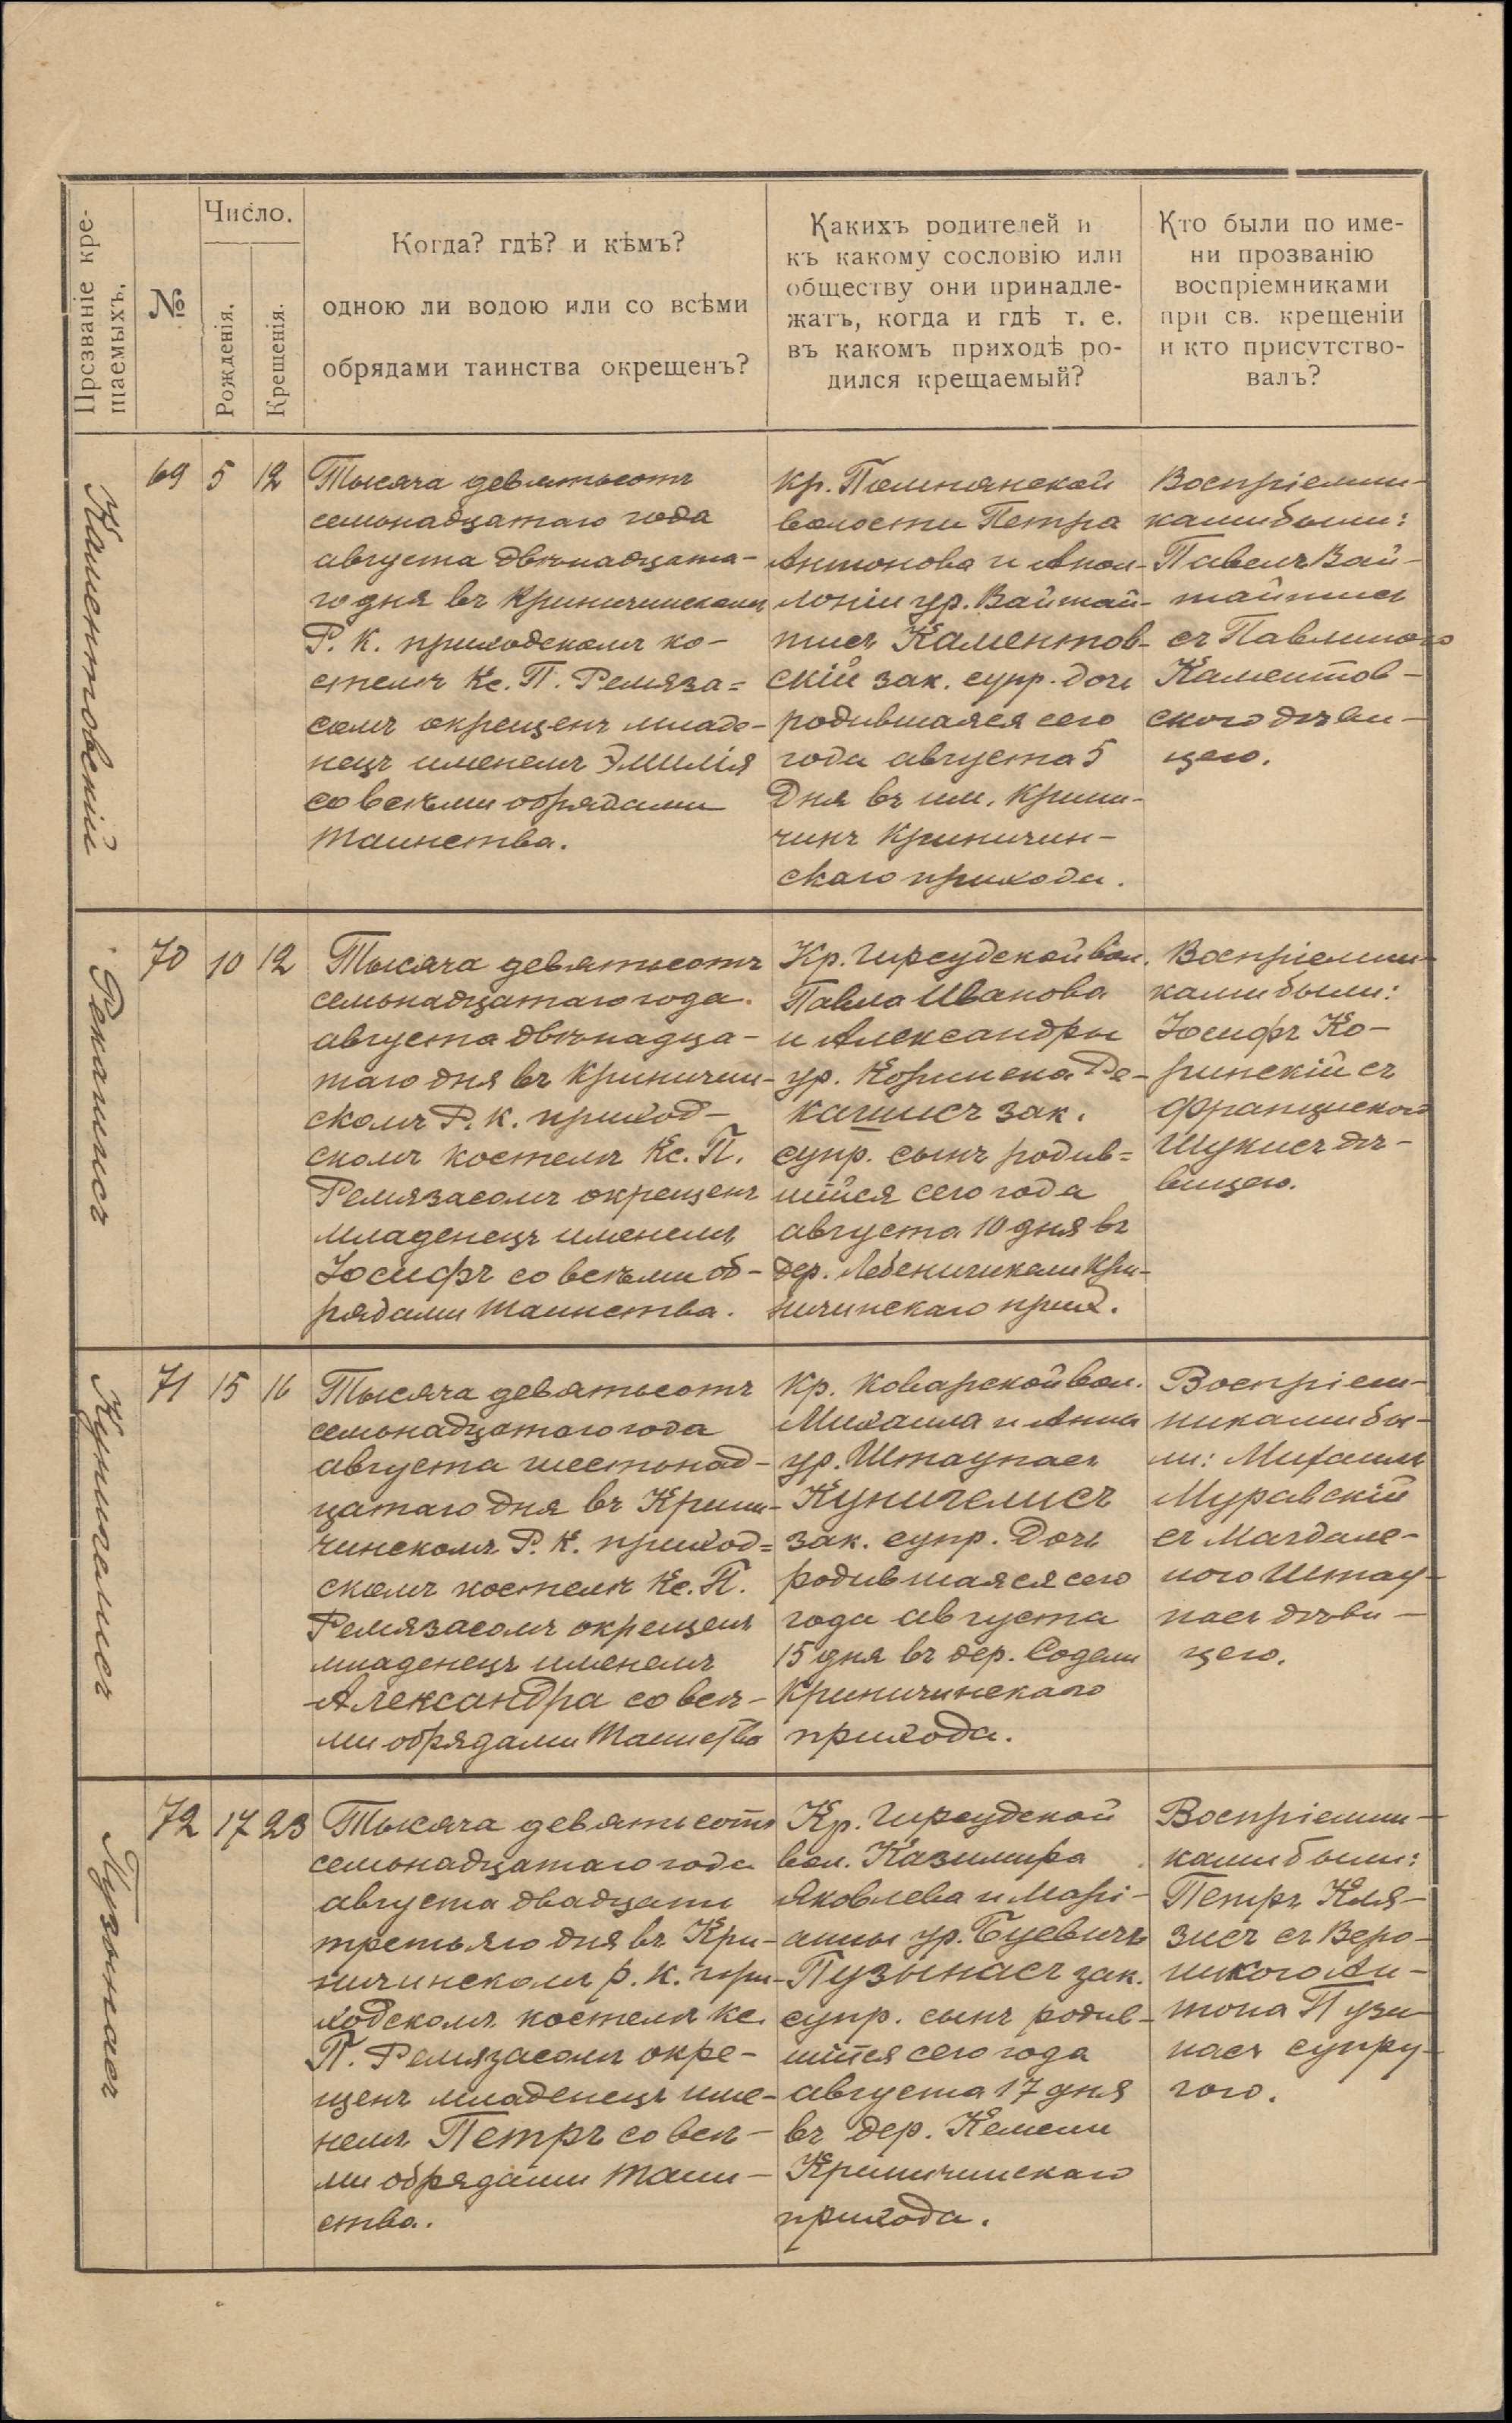 Прозваніе кре-
щаемыхъ.
№
Число.
Рожденія.
Крещенія.
Когда? гдѣ? и кѣмъ?
одною ли водою или со всѣми
обрядами таинства окрещенъ?
Какихъ родителей и
къ какому сословію или
обществу они принадле-
жатъ, когда и гдѣ т. е.
въ какомъ приходѣ ро-
дился крещаемый?
Кто были по име-
ни прозванію
воспріемниками
при св. крещеніи
и кто присутство-
валъ?
Каментовскій
69 5 12
Тысяча девятьсотъ
семьнадцатаго года
августа двѣнадцата-
го дня въ Криничинскомъ
Р. К. приходскомъ ко-
стелѣ Кс. П. Ремяза-
сомъ окрещенъ младе-
нецъ именемъ Эмилія
со всѣми обрядами
таинства.
Кр.
волости Петра
Антонова и Апол-
лоніи ур. Вайтай-
тисъ Каментов-
скій зак. супр. дочь
родившаяся сего
года августа 5
дня въ им. Крини-
чинъ Криничин-
скаго прихода.
Воспріемни-
ками были:
Павелъ Вай-
тайтисъ
съ Павлиною
Каментов-
скою дѣви-
цею.
Рекашисъ
70 10 12
Тысяча девятьсотъ
семьнадцатаго года
августа двѣнадца-
таго дня въ Криничин-
скомъ Р. К. приход-
скомъ костелѣ Кс. П.
Ремязасомъ окрещенъ
младенецъ именемъ
Іосифъ со всѣми об-
рядами таинства.
Кр. Гирсудской вол.
Павла Иванова
и Александры
ур. Ре-
кашисъ зак.
супр. сынъ родив-
шійся сего года
августа 10 дня въ
дер. Кри-
ничинскаго прих.
Воспріемни-
ками были:
Іосифъ Ко-
ринскій съ
Францискою
Шукисъ дѣ-
вицею.
Куничелисъ
71 15 16
Тысяча девятьсотъ
семьнадцатаго года
августа шестьнад-
цатаго дня въ Крини-
чинскомъ Р. К. приход-
скомъ костелѣ Кс. П.
Ремязасомъ окрещенъ
младенецъ именемъ
Александра со всѣ-
ми обрядами таинства
Кр. Коварской вол.
Михаила и Анны
ур. Штаупасъ
Куничелисъ
зак. супр. дочь
родившаяся сего
года августа
15 дня въ дер. Содели
Криничинскаго
прихода.
Воспріем-
никами бы-
ли: Михаилъ
Муравскій
съ Магдале-
ною Штау-
пасъ дѣви-
цею.
Пузынасъ
72 17 23
Тысяча девятьсотъ
семьнадцатаго года
августа двадцать
третьяго дня въ Кри-
ничинскомъ р. к. при-
ходскомъ костелѣ кс.
П. Ремязасомъ окре-
щенъ младенецъ име-
немъ Петръ со всѣ-
ми обрядами таин-
ства.
Кр. Гирсудской
вол. Казимира
Яковлева и Марі-
анны ур. Буевичъ
Пузынасъ зак.
супр. сынъ родив-
шійся сего года
августа 17 дня
въ дер. Кемели
Криничинскаго
прихода.
Воспріемни-
ками были:
Петръ Кля-
зисъ съ Веро-
никою Ан-
тона Пузы-
насъ супру-
гою.